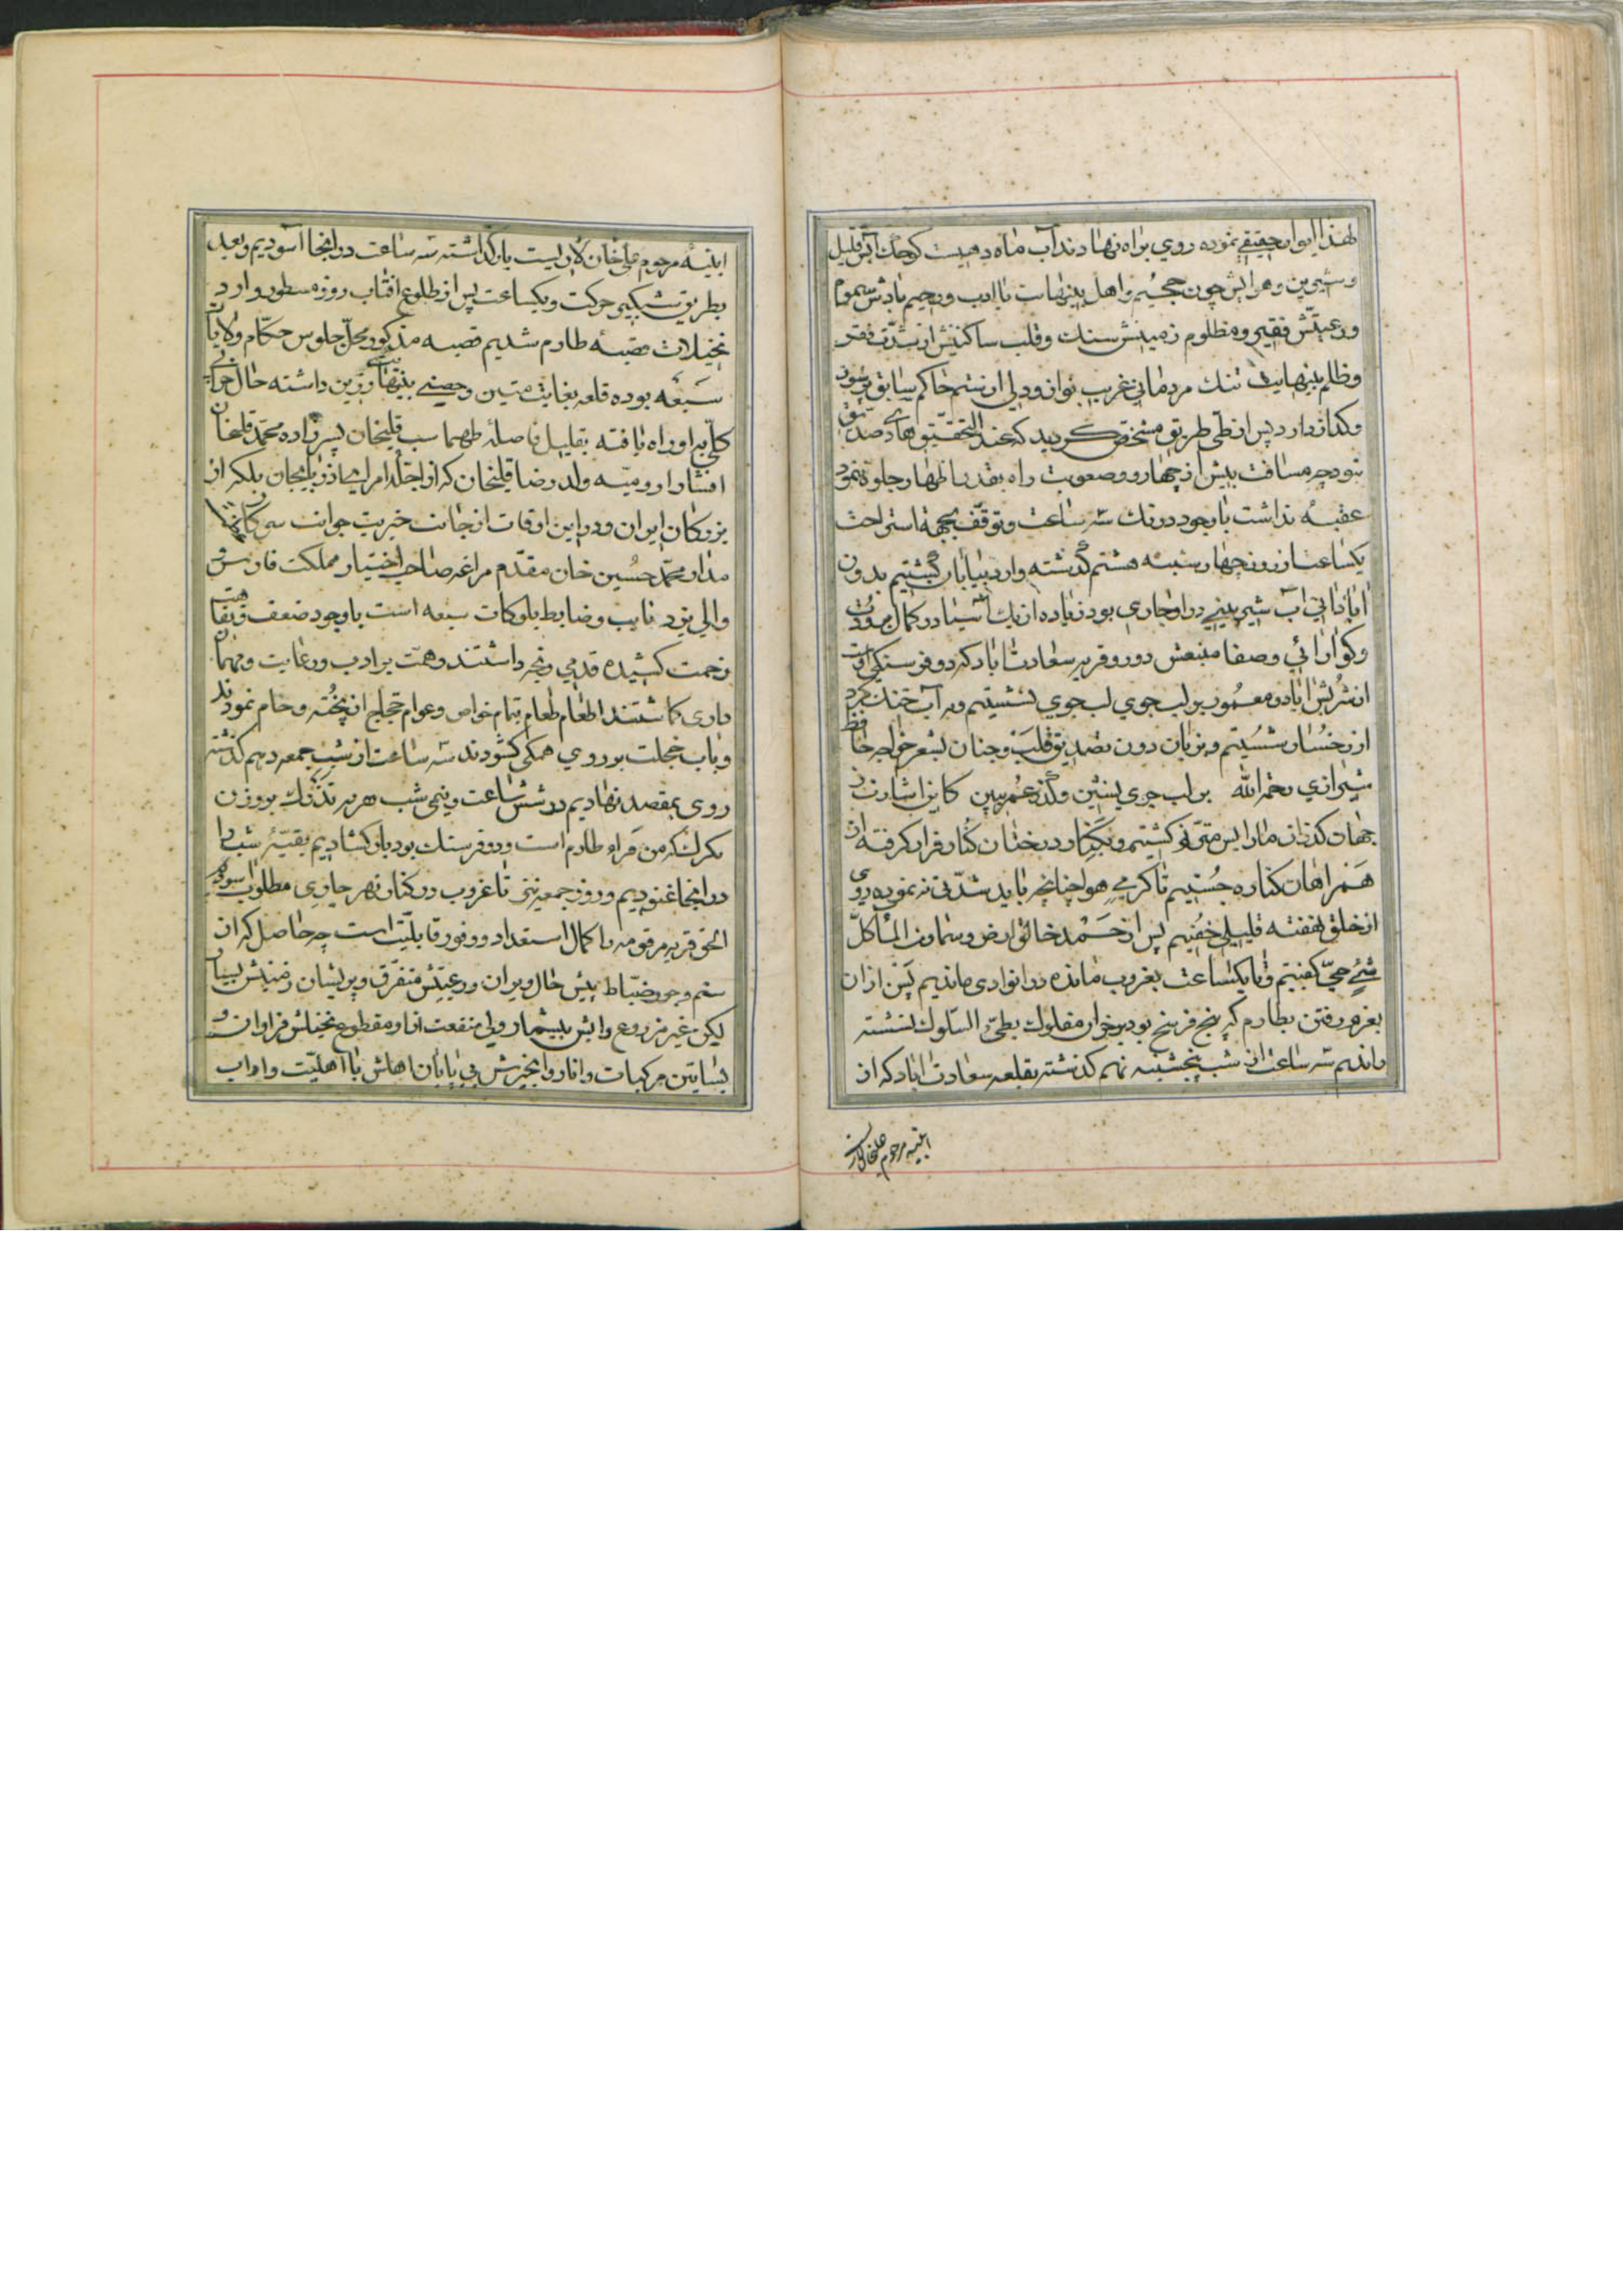 لهذا ایوار حقیقے نموده روي براه نهادند آب ماه دهیست کوچک آبش قلیل
و شیرین و هوایش چون جحیم و اهل بینهایت با ادب و رحیم بادش سموم
و رعیتش فقیر و مظلوم زمینش سنك و قلب ساکنینش از شدّت فقر
و ظلم بینهایت تنك مردمانی غریب نواز ولی از ستم حاکم سابق پر سوز
و کداز دارد پس از طی طریق مشخص کردید که عند التحقیق
نبود چه مسافت بیش از چهار و صعوبت راه بقدر اظهار جلوه ننمود
عقبه نداشت با وجود درنك سه ساعت و توقف بجهة استراحت
یکساعت از روز چهارشنبه هشتم گذشته وارد گشتیم بدون
آبادانی آب شیرینی در او جاری بود زیاده از یك آسیا در کمال برودت
و کوارائی و صفا منبعش دورو قریه سعادت اباد که دو فرسنکی است
از شربش اباد و معمور بر لب جوي لب جوي نشستیم و به آب خنك کرد
از رخسار شستیم و بزبان درون تصدیق قلب و جنان بشعر خواجه حافظ
شیرازي رحمه الله بر لب جوي بنشین و گذر عمر ببین کاین اشارت ز
جهان گذران ما را بس مترنّم گشتیم و بکنار درختان کنار قرار کرفته از
همراهان کناره جستیم تا کرمے هوا چنانچه باید شدّتی نه نموده روي
از خلق نهفته قلیلی خفتیم پس از حمد خالق ارض و سما و من الماء کلّ
شئ حیّ کفتیم و تا یکساعت بغروب مانده در انوادی ماندیم پس از ان
بعزم رفتن بطارم که پنج فرسخ بود برخوان مفلوك بطیّ السلوك نشسته
راندیم سه ساعت از شب پنجشنبه نهم کذشته بقلعه سعادت اباد که از
ابنیه مرحوم علیخان لار
ابنیه مرحوم علی خان لاریست بار گذاشته سه ساعت در اینجا آسودیم و بعد
بطریق شبکیر حرکت و یکساعت پس از طلوع افتاب روز مسطور وارد
نخیلات قصبه طارم شدیم قصبه مذکور محل جلوس حکّام ولایات
سبعه بوده قلعه بغایت متین و حصنے بینهایت رزین داشته حال خرابی
کلّی باو راه یافته بقلیل فاصله طهماسب قلیخان پسرزاده محمد قلیخان
افشار ارومیه ولد رضا قلیخان که از اجلّه امرای اذربایجان بلکه از
بزرکان ایران و در این اوقات از جانب خیریت جوانب
مدار محمّد حسین خان مقدّم مراغه صاحب اختیار مملکت فارس
والي یزد نایب و ضابط بلوکات سبعه است با وجود ضعف و نقاهت
زحمت کشیده قدمی رنجه داشتند و همّت بر ادب و رعایت و مهمان
داری کماشتند اطعام طعام بتمام خواص و عوام حجاج از پخته و خام نمودند
و باب خجلت بر روي همکی کشودند سه ساعت از شب جمعه دهم کذشته
روی بمقصد نهادیم در شش ساعت و نیمی شب بقریه
که من قراء طارم است و دو فرسنك بود بار کشادیم بقیّه شب را
در اینجا غنودیم و روز جمعه نیز تا غروب در کنار نهر جاری مطلوب اسوده
الحق قریه مرقومه با کمال استعداد و وفور قابلیّت است چه حاصل که از
ستم و جور ضبّاط پیش حال ویران و رعیّتش متفرّق و پریشان زمینش بسیار
لیکن غیر مزروع و ابش بیشمار ولی منفعت از او مقطوع نخیلش فراوان و
بساتین مرکبات و انار و انجیرش بی پایان اهلش با اهلیّت و اداب